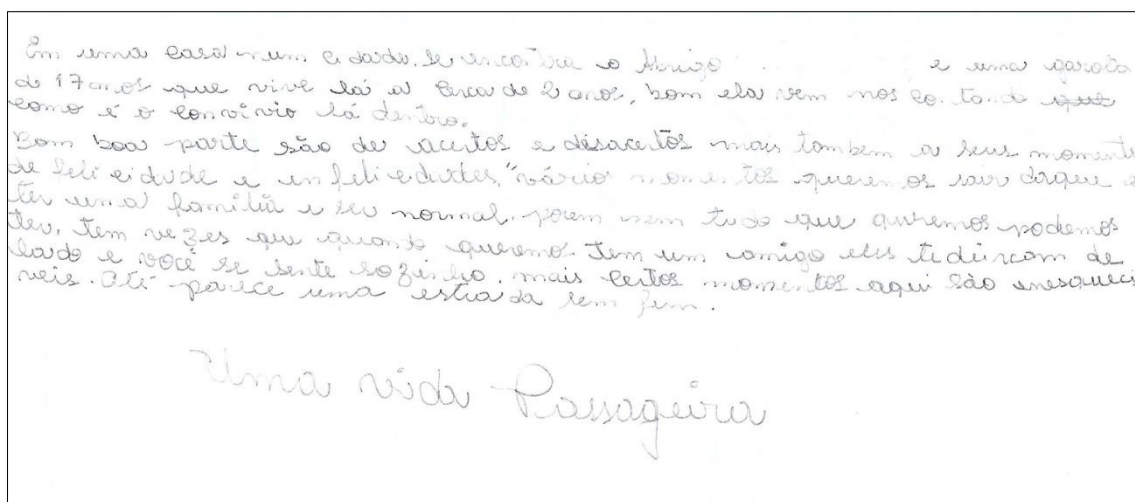 Em uma casa num cidade se encontra o Abrigo e uma garota
de 17 anos que vive lá a cerca de 2 anos, bom ela vem nos contando que
como é o convivio lá dentro.
Bom boa parte são de acertos e desacertos mais tambem a seus momento
de felicidade e infelicidades, "vários momentos queremos sair daqui e
ter uma familia e ser normal, porem nem tudo que queremos podemos
ter, tem vezes que quando queremos tem um amigo eles te deixam de
lado e você se sente sozinho, mais certos momentos aqui são inesqueci
veis. Até parece uma estrada sem fim.
Uma vida Passageira